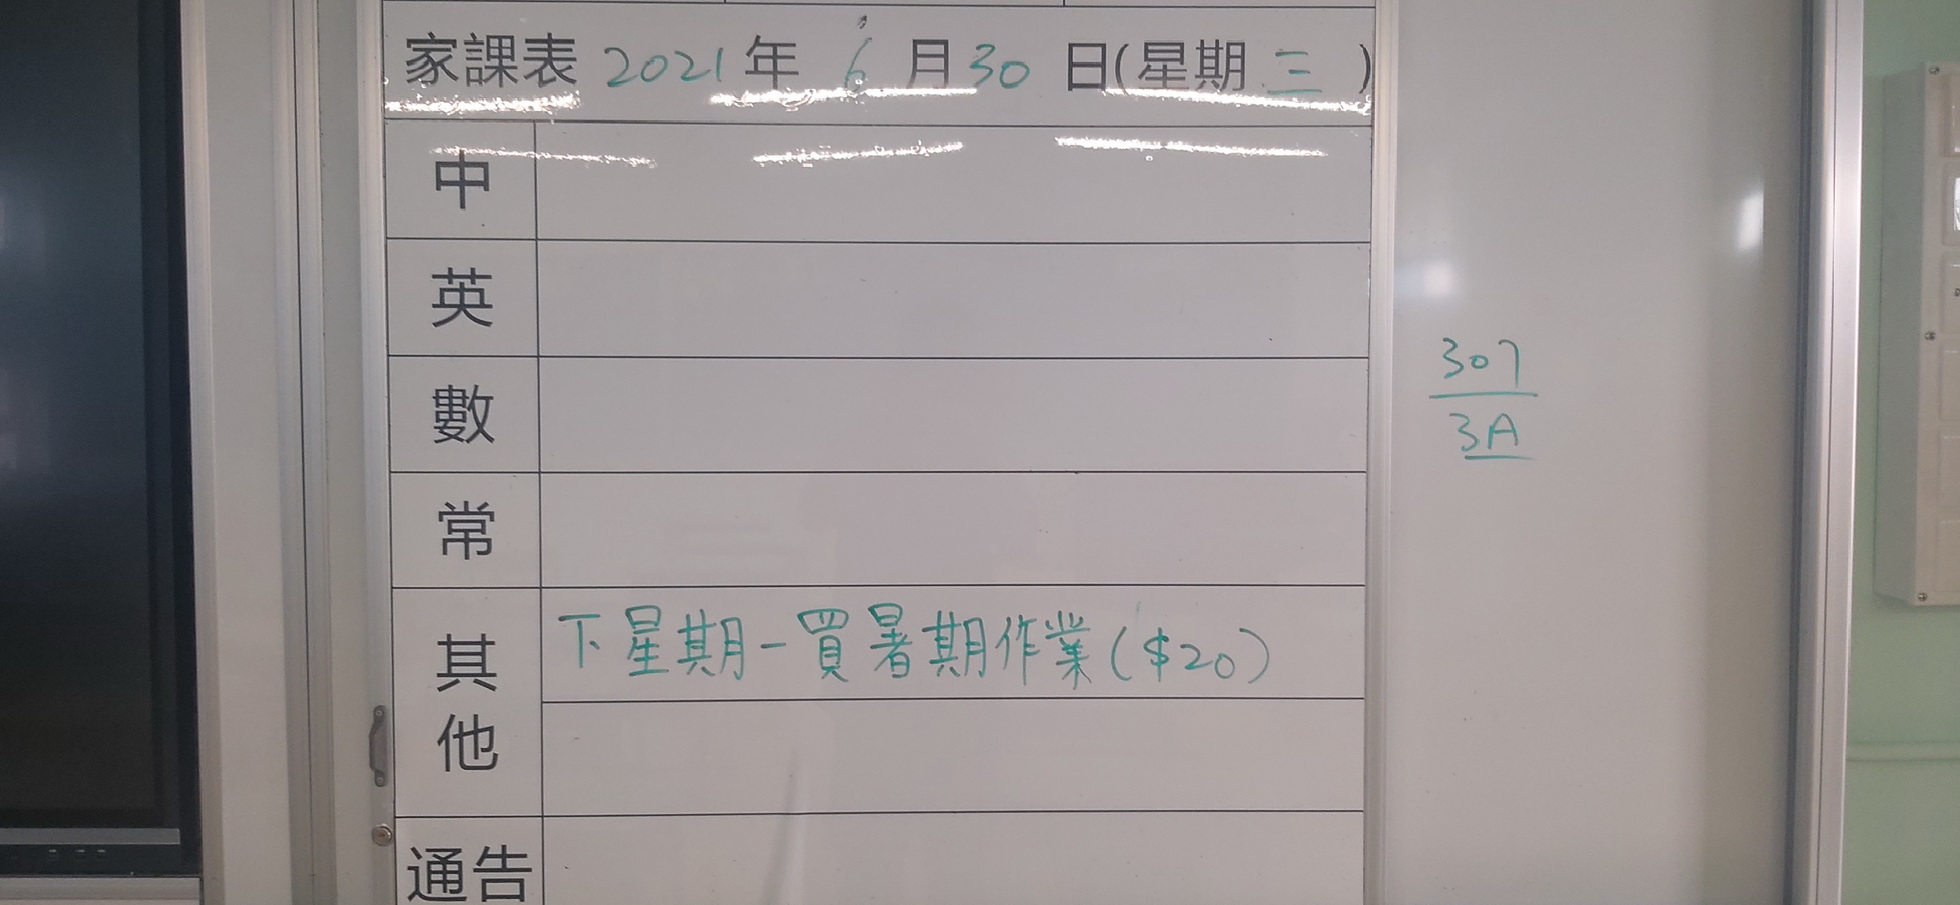 家課表 2021 年 6 月 30 日(星期 三 )
中
英
數
常
其他
下星期一買暑期作業($20)
通告
307
3A